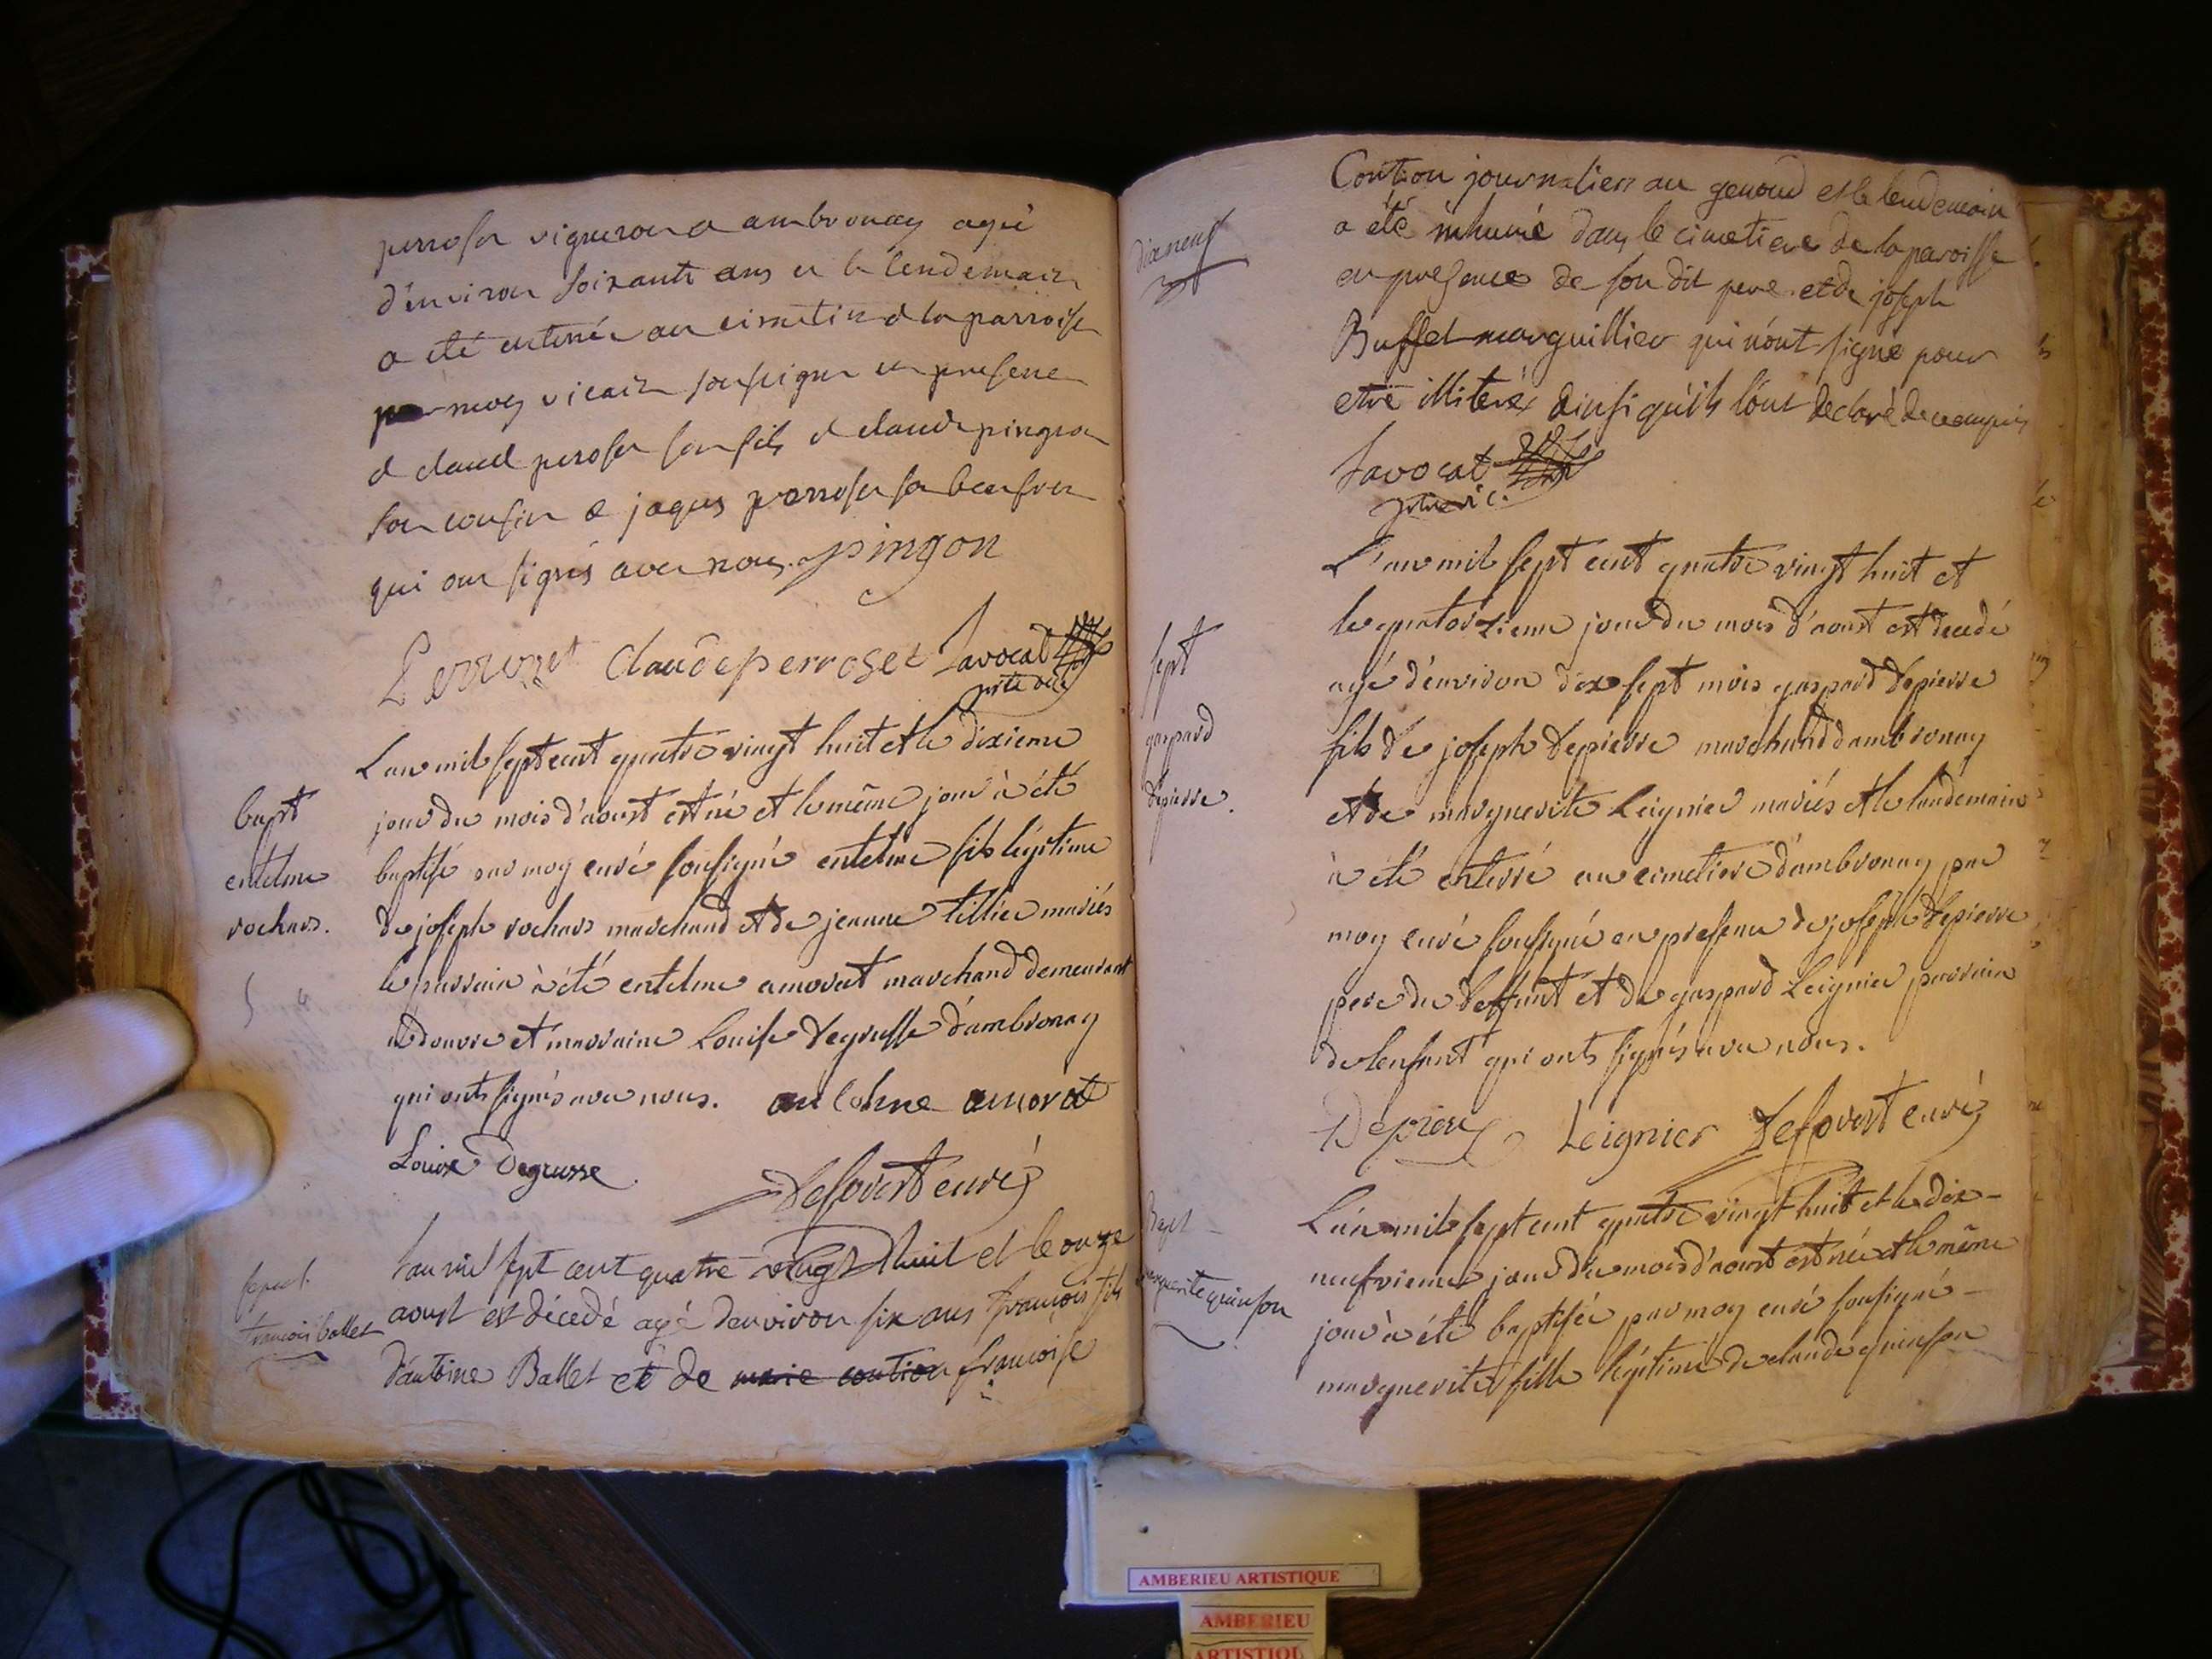 perroset vigneron a ambronay agé
d'environ soixante ans et le lendemain
a eté enterré au cimetiere de la parroisse
par moy vicaire soussigné en presence
de claude peroset son fils de claude pingon
son cousin et jaques perroset son beaufrere
qui ont signés avec nous. pingon
Perroset claude perroset Lavocat
ptre vic
L'an mil sept cent quatre vingt huit et le dixieme
jour du mois d'aoust est né et le même jour à été
bapt
baptisé par moy curé sousigné entelme fils légitime
entelme
de joseph rochas marchand et de jeanne tillier mariés
rochas.
le parrain à été entelme amorat marchand demeurant
et marraine Louise degrusse d'ambronay
qui onts signés avec nous. amorat
Louise Degrusse. Desovert curé
L'an mil sept cent quatre vingt huit et le onze
sepult.
aoust est décedé agé d'environ six ans françois fils
francois ballet
d'antoine Ballet et de marie coution francoise
Coution journalier au genoud et le lendemain
dixneuf
a été inhumé dans le cimetiere de la paroisse
en presence de son dit pere et de joseph
Buffet marguillier qui n'ont signé pour
etre illiterés ainsi qu'ils l'ont declaré de ce enquis
Lavocat
ptre vic.
L'an mil sept cent quatre vingt huit et
le quatorzieme jour du mois d'aoust est decedé
sept
agé d'environ dix sept mois gaspard depierre
gaspard
fils de joseph depierre marchand d'ambronay
depierre.
et de marguerite Leignier mariés et le landemain
à été enterré au cimetiere d'ambronay par
moy curé sousigné en presence de joseph depierre
pere du deffunt et de gaspard Leignier parrain
de lenfant qui onts signés avec nous.
Depierre Leignier Desovert curé
Bapt
L'an mil sept cent quatre vingt huit et le dix-
neufvieme jour du mois d'aoust est née et le même
marguerite quinson
jour à été baptisée par moy curé sousigné
marguerite fille légitime de claude quinson
AMBERIEU ARTISTIQUE
AMBERIEU
ARTISTIQU